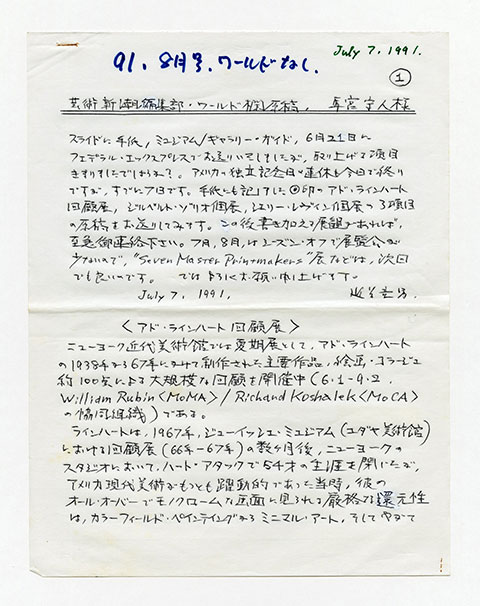 July 7, 1991.
91. 8月号. ワールドなし.
1
芸術新潮編集部・ワールド欄原稿,
スライドに手紙, ミュジアム/ギャラリー・ガイド, 6月21日に
フェデラル・エックスプレスでお送りいたしましたが, 取り上げる項目
きまりましたでしょうか?. アメリカの独立記念日の連休も今日で終り
ですが, すでに7日です. 手紙にも記しました アド・ラインハート
回顧展, ジルベルト・ゾリオ個展, シェリー・レヴィン個展の3項目
の原稿をお送りしてみます. この後書き加える展覧会あれば,
至急御連絡下さい. 7月, 8月はシーズン・オフで展覧会が
少ないので, "Seven Master Printmakers"展などは, 次回
でも良いのです. ではよろしくお願い申し上げます.
July 7, 1991.
〈アド・ラインハート回顧展〉
ニューヨーク近代美術館では夏期展として, アド・ラインハート
の1938年から67年にかけて制作された主要作品, 絵画・コラージュ
約100点による大規模な回顧を開催中(6.1-9.2,
William Rubin<MoMA>/Richard Koshalek<MoCA>
の協同組織)である.
ラインハートは, 1967年, ジューイッシュ・ミュジアム(ユダヤ美術館)
における回顧展(66年-67年)の数ヶ月後, ニューヨークの
スタジオにおいて, ハート・アタックで54才の生涯を閉じたが,
アメリカ現代美術がもっとも躍動的であった当時, 彼の
オール・オーバーでモノクロームな画面に見られる厳格な還元性
は, カラーフィールド・ペインティングからミニマル・アート, そしてやがて